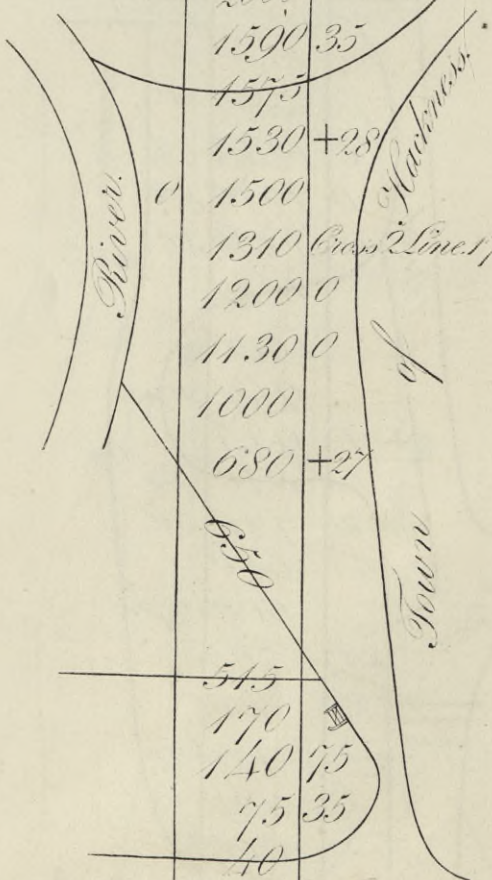 1590 35
1575
1530 +28
0 1500
1310 Cross 2 Line.
1200 0
1130 0
1000
680 +27
650
515
170
140 75
75 35
40
River.
Town of Hackness.